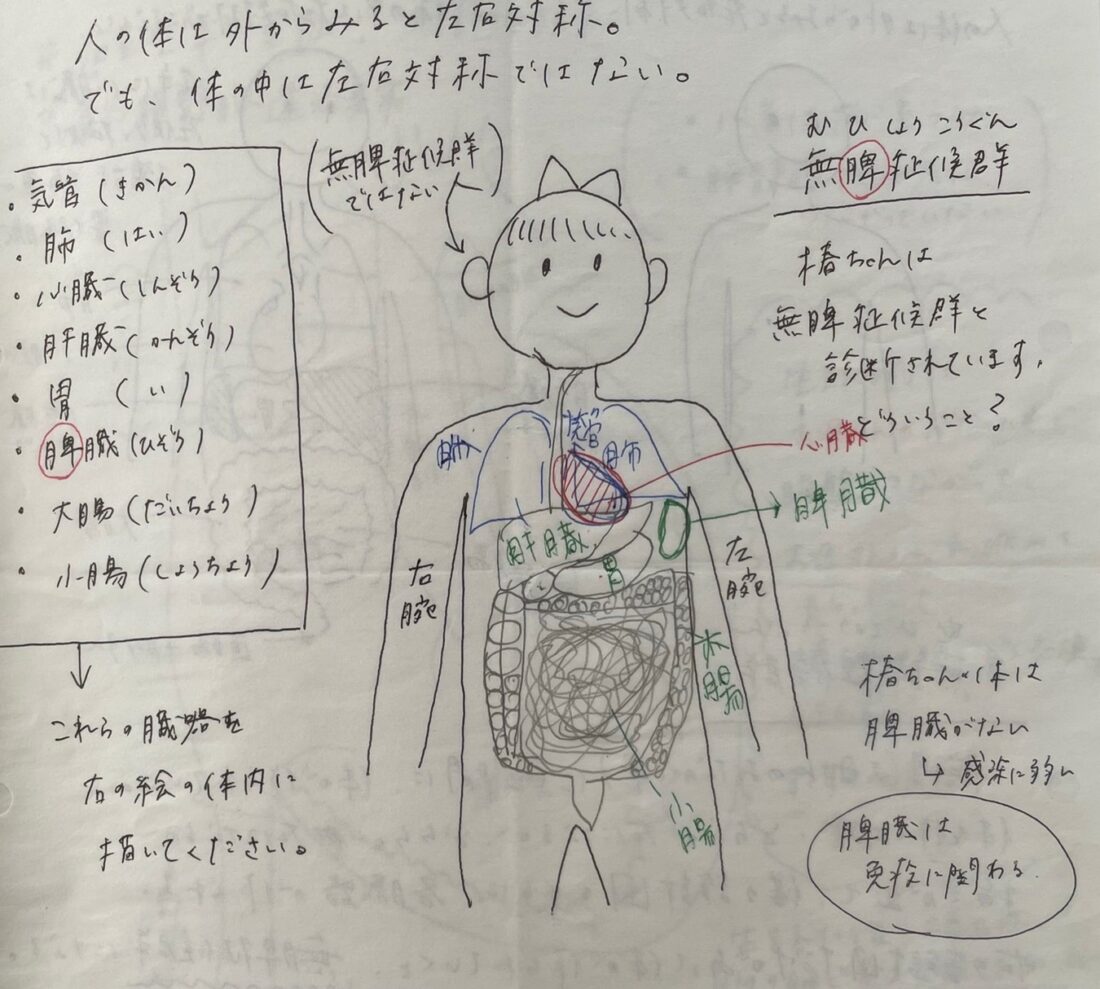 人の体は外からみると左右対称。
でも、体の中は左右対称ではない。
・気管(きかん)
・肺(はい)
・心臓(しんぞう)
・肝臓(かんぞう)
・胃(い)
・脾臓(ひぞう)
・大腸(だいちょう)
・小腸(しょうちょう)
これらの臓器を
右の絵の体内に
描いてください。
(無脾症候群
ではない)
肺
気管
肺
心臓
脾臓
肝臓
胃
右腕
左腕
大腸
小腸
むひしょうこうぐん
無脾症候群
椿ちゃんは
無脾症候群と
診断されています。
どういうこと?
椿ちゃんの体は
脾臓がない
↳感染に弱い
脾臓は
免疫に関わる